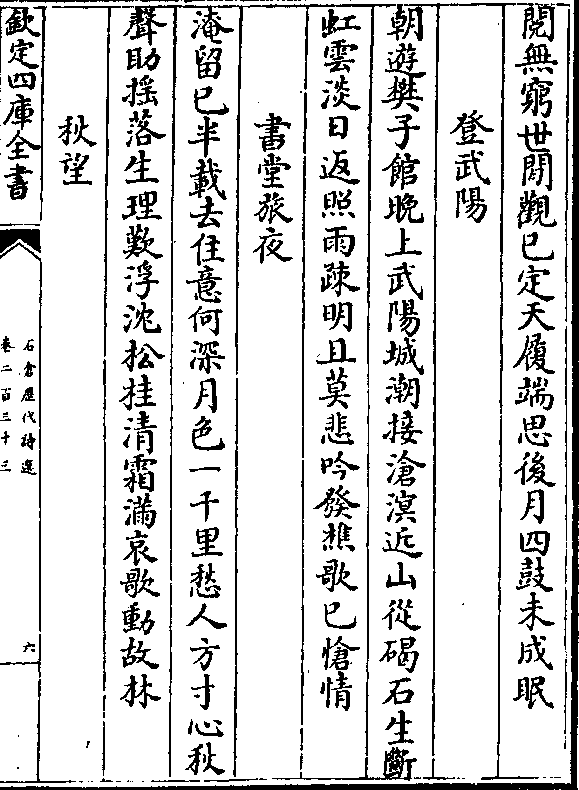 閱無窮世閒觀已定天履端思後月四鼓未成眠
登武陽
朝遊樊子館晚上武陽城潮接滄溟近山從碣石生斷
虹雲淡日返照雨疎明且莫悲吟發樵歌已愴情
書堂旅夜
淹留已半載去住意何深月色一千里愁人方寸心秋
聲助搖落生理歎浮沈松桂清霜滿哀歌動故林
秋望
欽定四庫全書
石倉歷代詩選
卷二百三十三
六